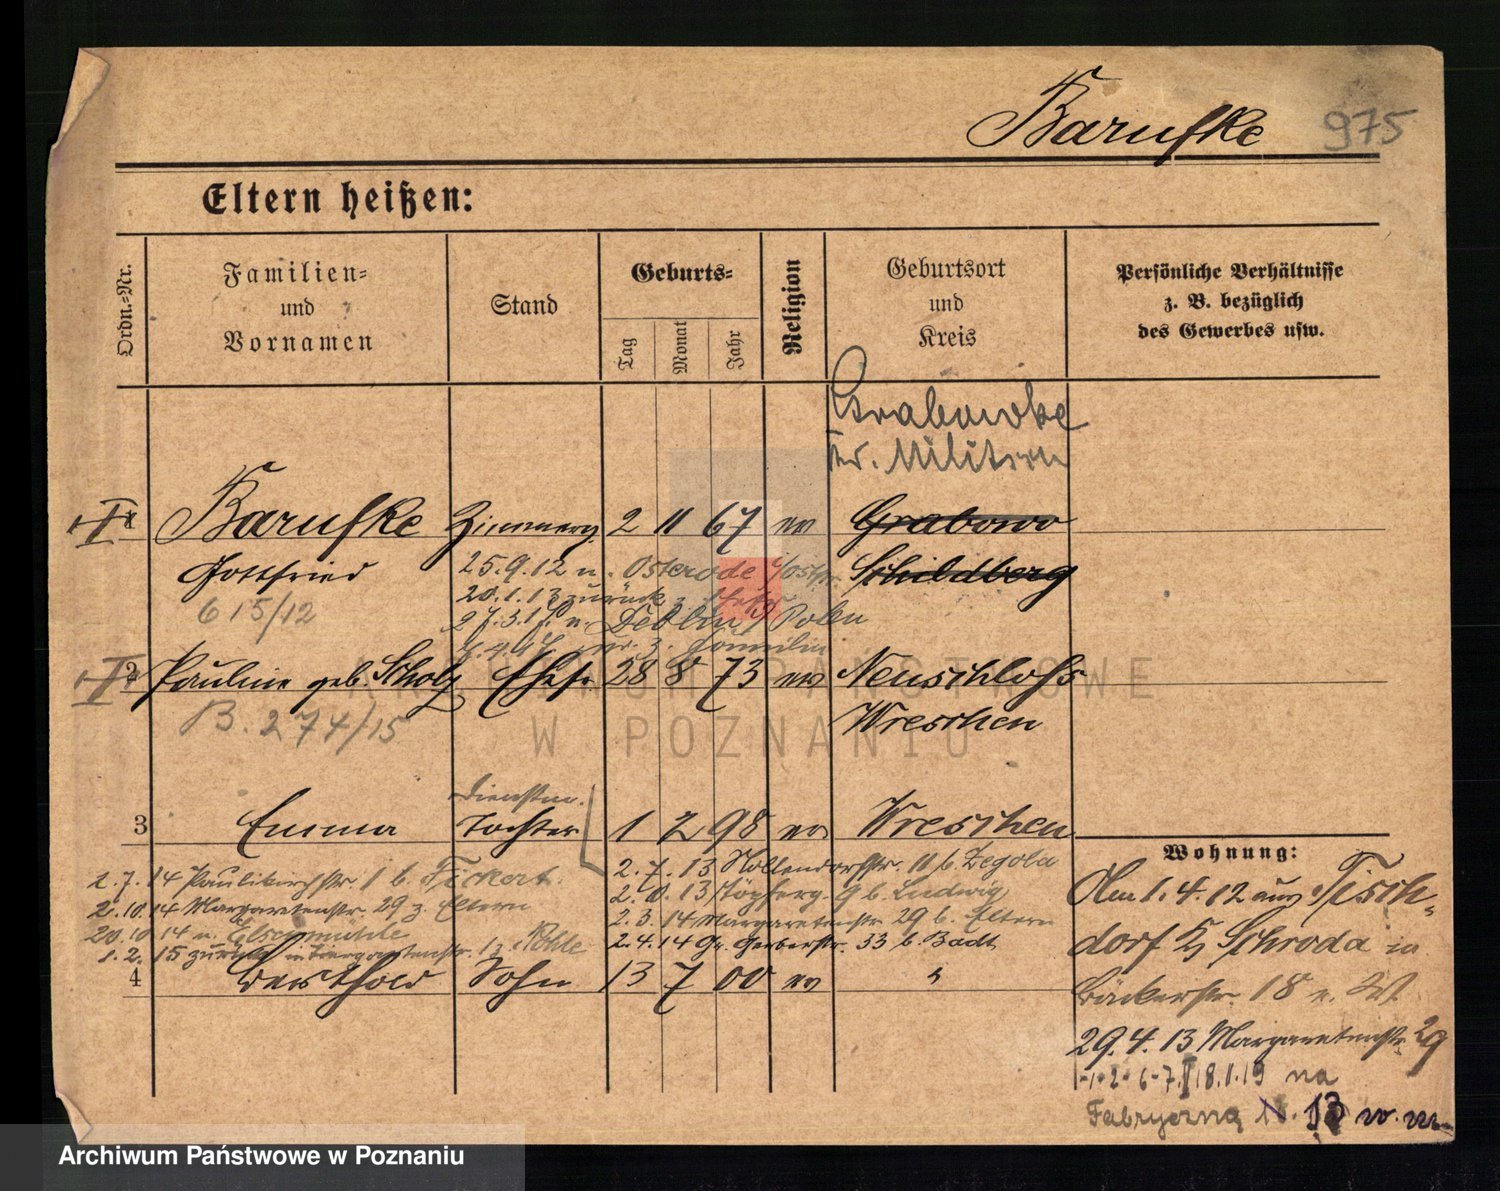 Barufke 975
Eltern heißen:
Ordn.-Nr.
Familien-
und
Vornamen
Stand
Geburts-
Tag
Monat
Jahr
Religion
Geburtsort
und
Kreis
Persönliche Verhältnisse
z. B. bezüglich
des Gewerbes usw.
Grabowke
Kr. Militsch
1 Barufke 2 11 67 ev Grabowo
Gottfried 25.9.12 n. Osterode Schildberg
615/12 20.1.13 zurück
n. Deblin Polen
2 Pauline geb. Scholz Ehefr 28 8 73 ev Neuschloss
B. 274/15 Wreschen
Dienstm.
3 Emma Tochter 1 2 98 ev Wreschen
2.7.13 Nollendorfstr. 11 b. Zegola
2.7.14 Paulikirchstr. 1 b. Fickert.
2.10.13 Töpferg. 9 b. Ludwig
2.10.14 Margaretenstr. 29 z. Eltern
2.3.14 Margaretenstr. 29 b. Eltern
20.10.14 n. Elsenmühle
2.4.14 Gr. Gerberstr. 33 b. Badt
1.2.15 zurück
4 Berthold Sohn 13 7 00 ev "
Wohnung:
Am 1.4.12 aus Tisch-
dorf Kr Schroda in
Bäckerstr. 18 n. W.
29.4.13 Margaretenstr. 29
18.1.19 na
Fabryczną N. 13 w. m.
ARCHIWUM PAŃSTWOWE
W POZNANIU
Archiwum Państwowe w Poznaniu